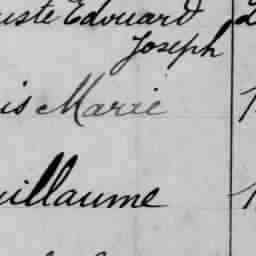 uste Edouard
Joseph
is Marie
uillaume